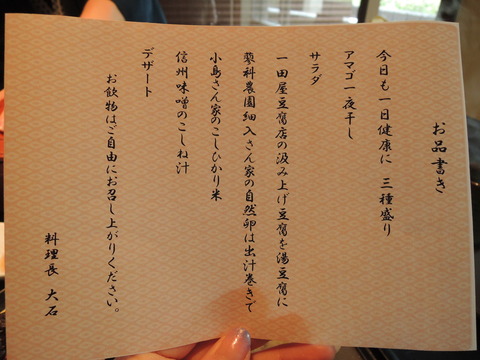 お品書き
今日も一日健康に 三種盛り
アマゴ一夜干し
サラダ
一田屋豆腐店の汲み上げ豆腐を湯豆腐に
蓼科農園細入さん家の自然卵は出汁巻きで
小島さん家のこしひかり米
信州味噌のこしね汁
デザート
お飲物はご自由にお召し上がりください。
料理長 大石